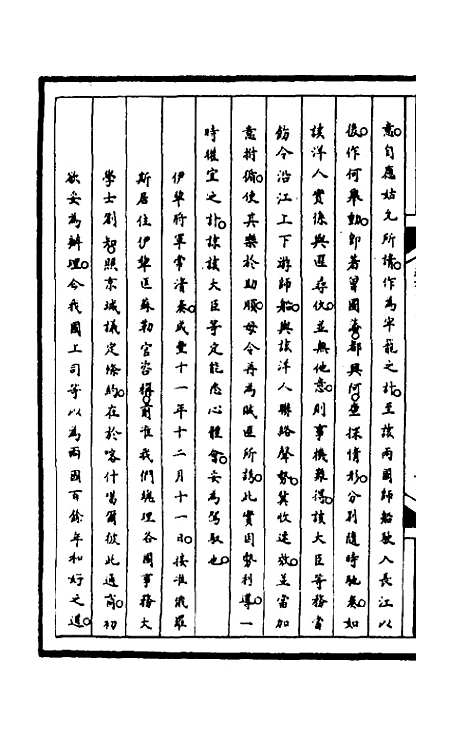 意自應姑允所請。作為牢籠之計。至該兩國師船駛入長江以
後。作何舉動。即著曾國藩。都興阿。查探情形。分別隨時馳奏。如
該洋人實係與匪尋仇。並無他意。則事機難得。該大臣等務當
飭令沿江上下游師船。與該洋人聯絡聲勢。冀收速效。並當加
意拊循。使其樂於助順。毋令再為賊匪所誘。此實因勢利導。一
時權宜之計。諒該大臣等定能悉心體會。妥為駕馭也。
伊犂將軍常清奏。咸豐十一年十二月十一日。接准俄羅
斯居住伊犂匡蘇勒官咨稱。前准我們總理各國事務大
學士劉智。照京城議定條約。在於喀什噶爾彼此通商。初
欲妥為辦理。今我國上司等以為兩國百餘年和好之道。